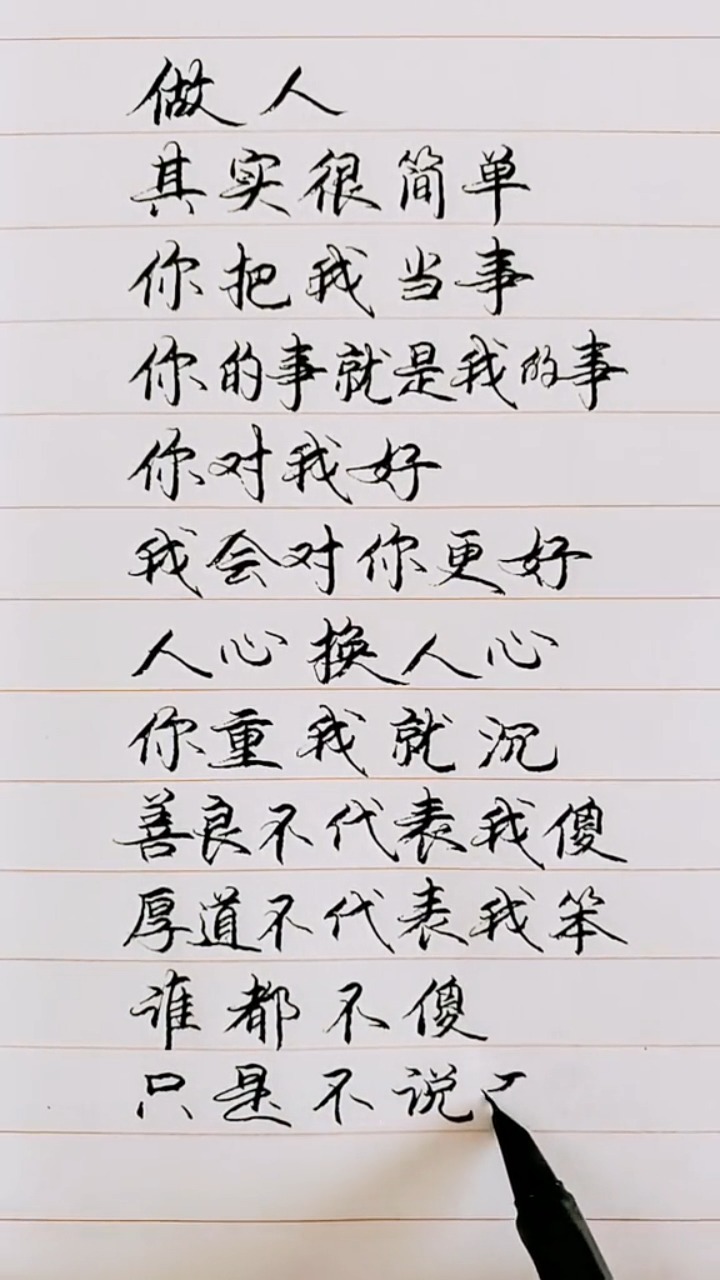 做人
其实很简单
你把我当事
你的事就是我的事
你对我好
我会对你更好
人心换人心
你重我就沉
善良不代表我傻
厚道不代表我笨
谁都不傻
只是不说